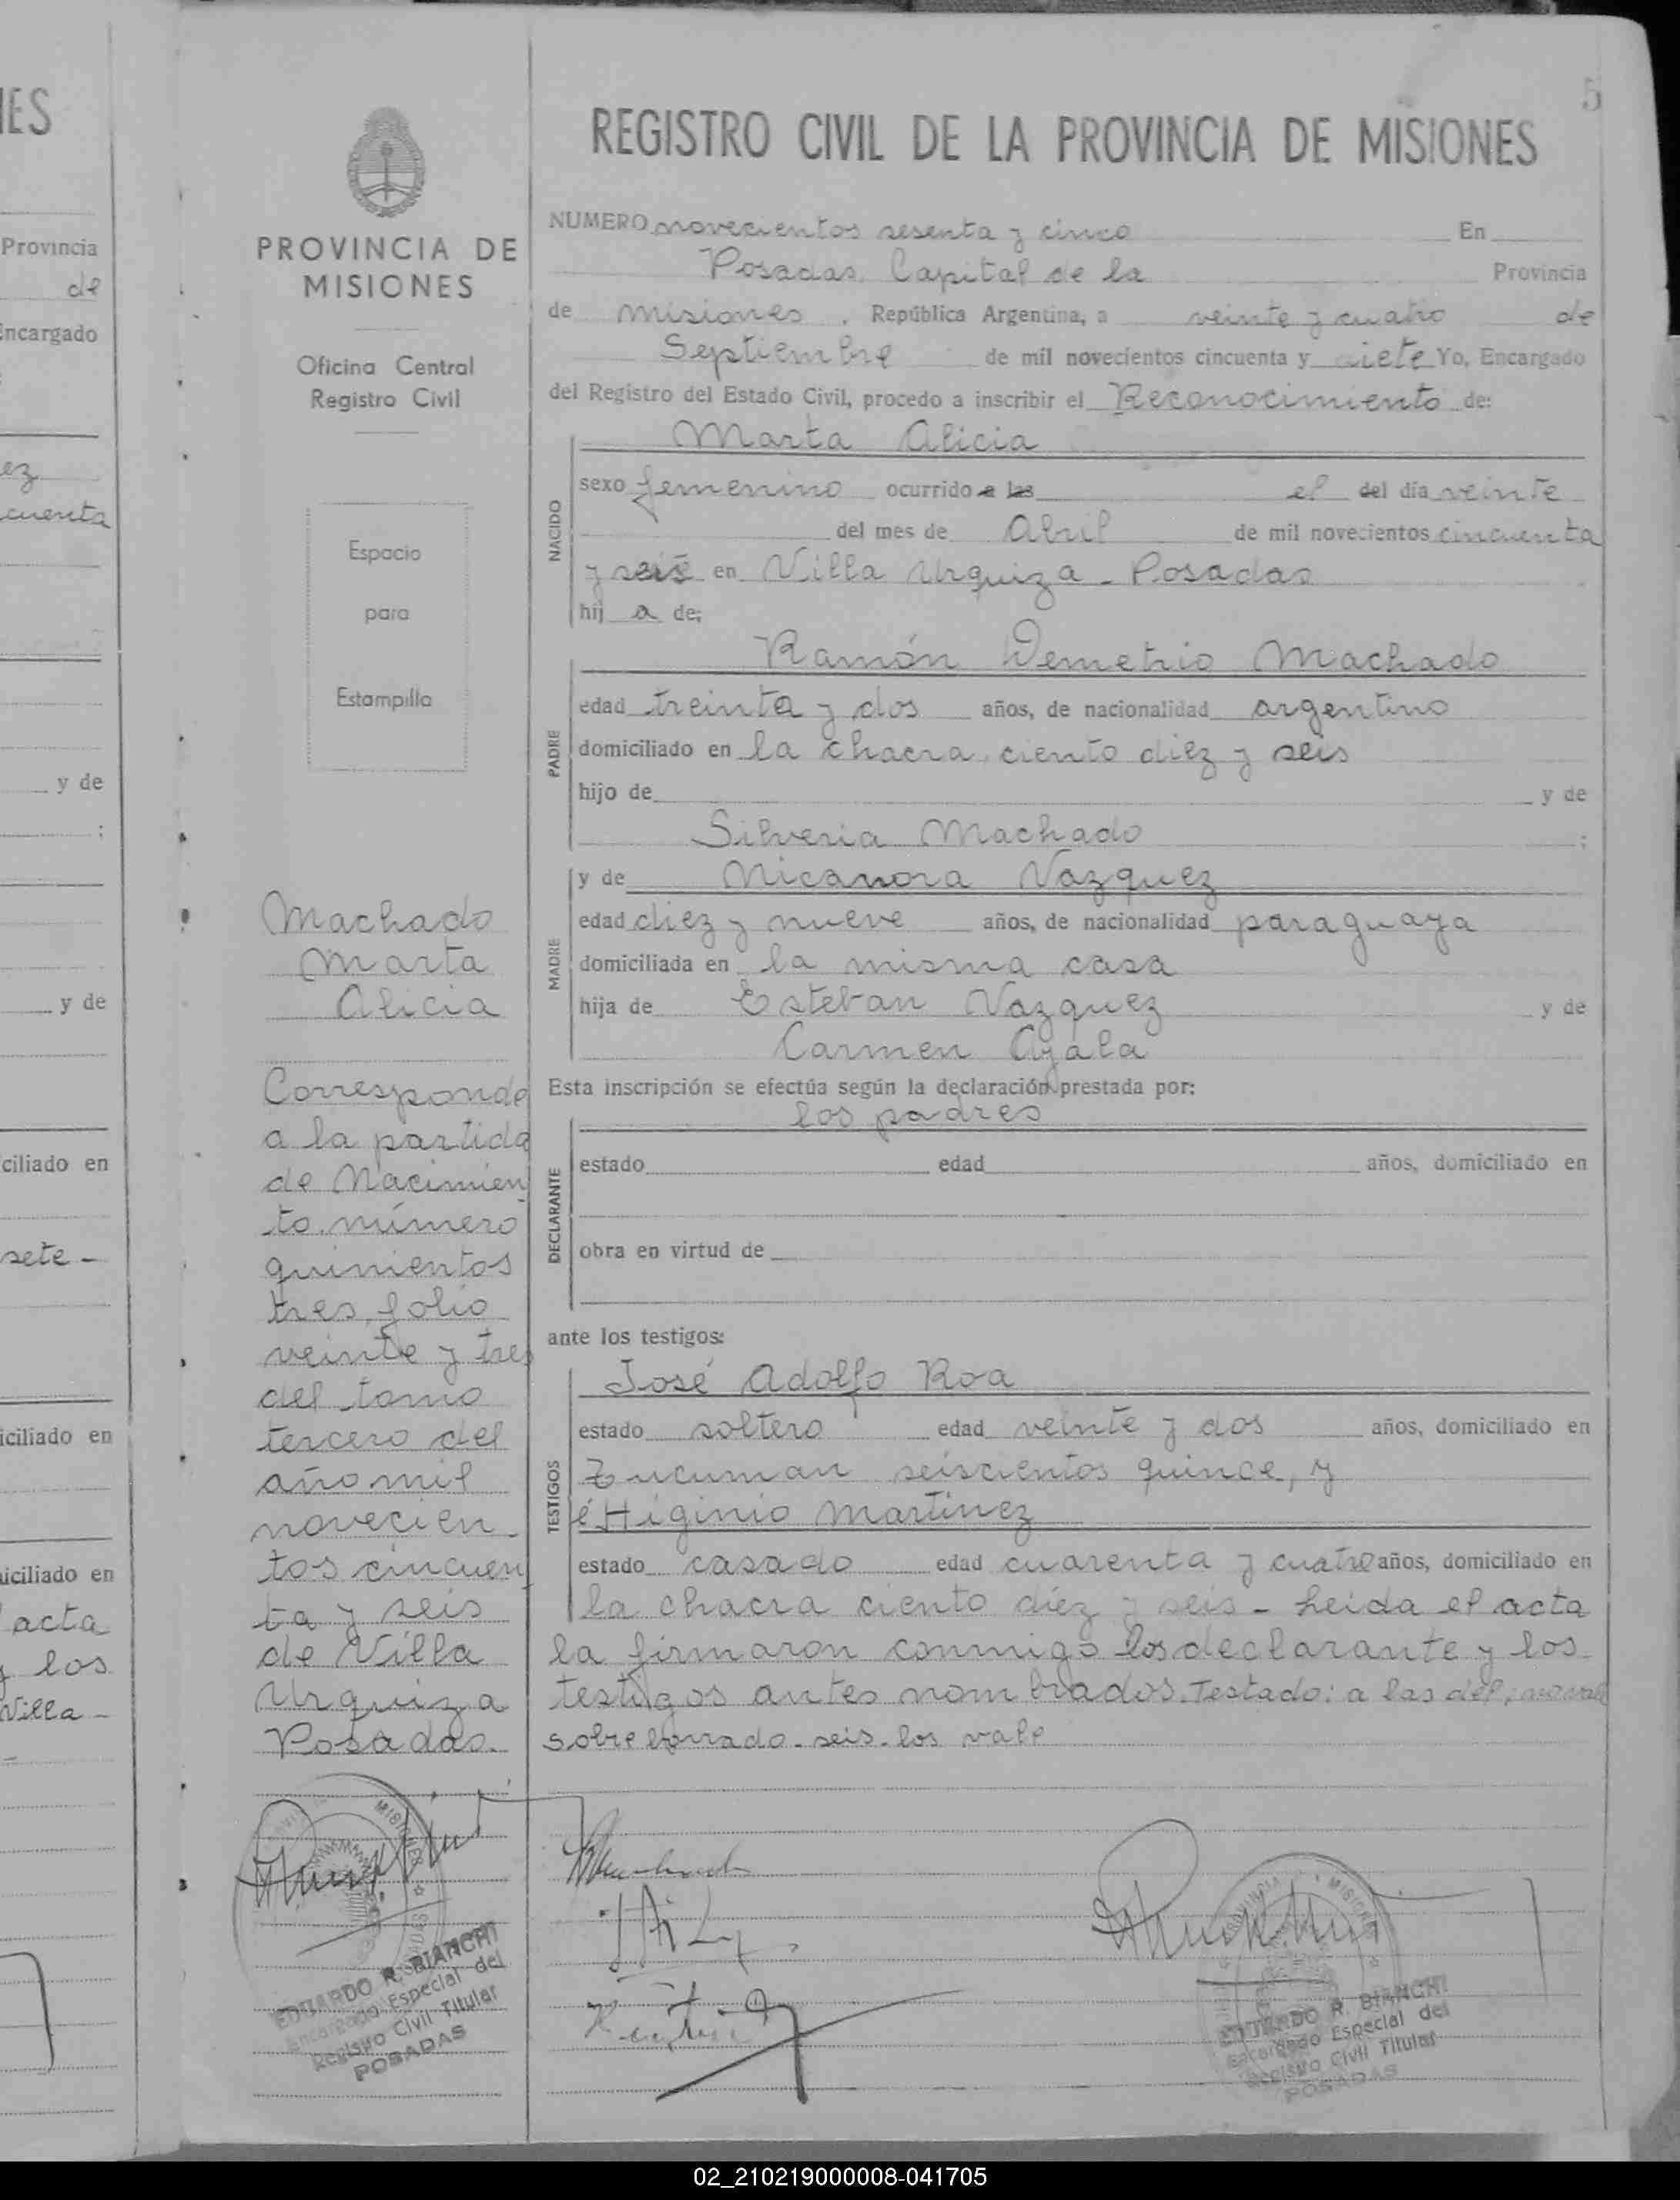 IES
Provincia
de
Encargado
ez
cuenta
y de
:
y de
ciliado en
sete -
iciliado en
iciliado en
acta
y los
Villa -
PROVINCIA DE
MISIONES
Oficina Central
Registro Civil
Espacio
para
Estampilla
Machado
Marta
Alicia
Corresponde
a la partida
de Nacimien
to número
quinientos
tres, folio
veinte y tres
del tomo
tercero del
año mil
novecien
tos cincuen
ta y seis
de Villa
Urquiza
Posadas.
MISIONES
EDUARDO R. BIANCHI
Encargado Especial del
Registro Civil Titular
POSADAS
5
REGISTRO CIVIL DE LA PROVINCIA DE MISIONES
NUMERO novecientos sesenta y cinco En
Posadas. Capital de la Provincia
de misiones . República Argentina, a veinte y cuatro de
Septiembre de mil novecientos cincuenta y siete Yo, Encargado
del Registro del Estado Civil, procedo a inscribir el Reconocimiento de:
Marta Alicia
NACIDO
sexo femenino ocurrido a las el del día veinte
del mes de Abril de mil novecientos cincuenta
y seis en Villa Urquiza - Posadas
hij a de:
Ramón Demetrio Machado
PADRE
edad treinta y dos años, de nacionalidad argentino
domiciliado en la chacra ciento diez y seis
hijo de y de
Silveria Machado ;
y de Nicanora Vazquez
MADRE
edad diez y nueve años, de nacionalidad paraguaya
domiciliada en la misma casa
hija de Esteban Vazquez y de
Carmen Ayala
Esta inscripción se efectúa según la declaración prestada por:
los padres
DECLARANTE
estado edad años, domiciliado en
obra en virtud de
ante los testigos:
José Adolfo Roa
TESTIGOS
estado soltero edad veinte y dos años, domiciliado en
Tucuman seiscientos quince, y
é Higinio Martinez
estado casado edad cuarenta y cuatro años, domiciliado en
la chacra ciento diez y seis - Leida el acta
la firmaron conmigo los declarante y los
testigos antes nombrados. Testado: a las del; no vale
sobre borrado - seis - los vale
PROVINCIA MISIONES
EDUARDO R. BIANCHI
Encargado Especial del
Registro Civil Titular
POSADAS
02_210219000008-041705